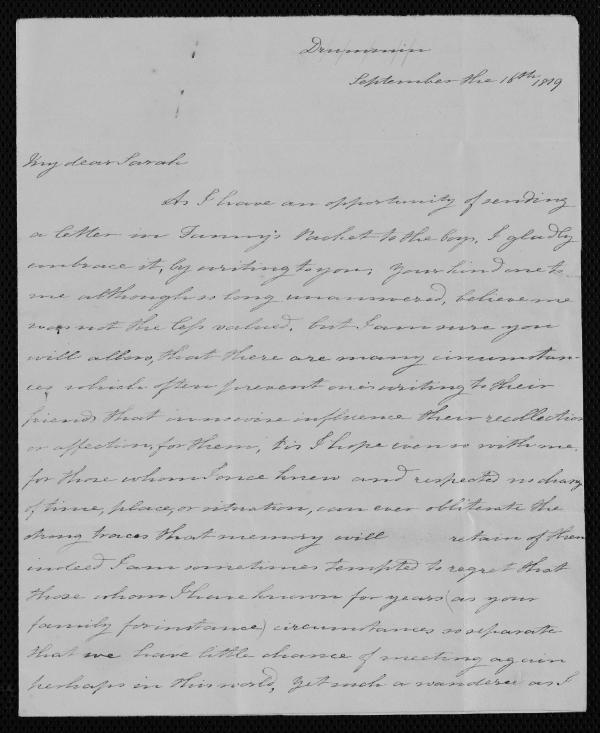 Drummin
September the 16th 1819
My dear Sarah
As I have an opportunity of sending
a letter in Fanny's Packet to the boys, I gladly
embrace it, by writing to you, your kind one to
me although so long unanswered, believe me
was not the less valued, but I am sure you
will allow, that there are many circumstan-
ces which often prevent one's writing to their
friends that in nowise influence their recollection
or affection, for them, tis I hope even so with me.
for those whom I once knew and respected no change
of time, place, or situation, can ever obliterate the
strong traces that memory will retain of them
indeed I am sometimes tempted to regret that
those whom I have known for years (as your
family for instance) circumstances so separate
that we have little chance of meeting again
perhaps in this world, yet such a wanderer as I